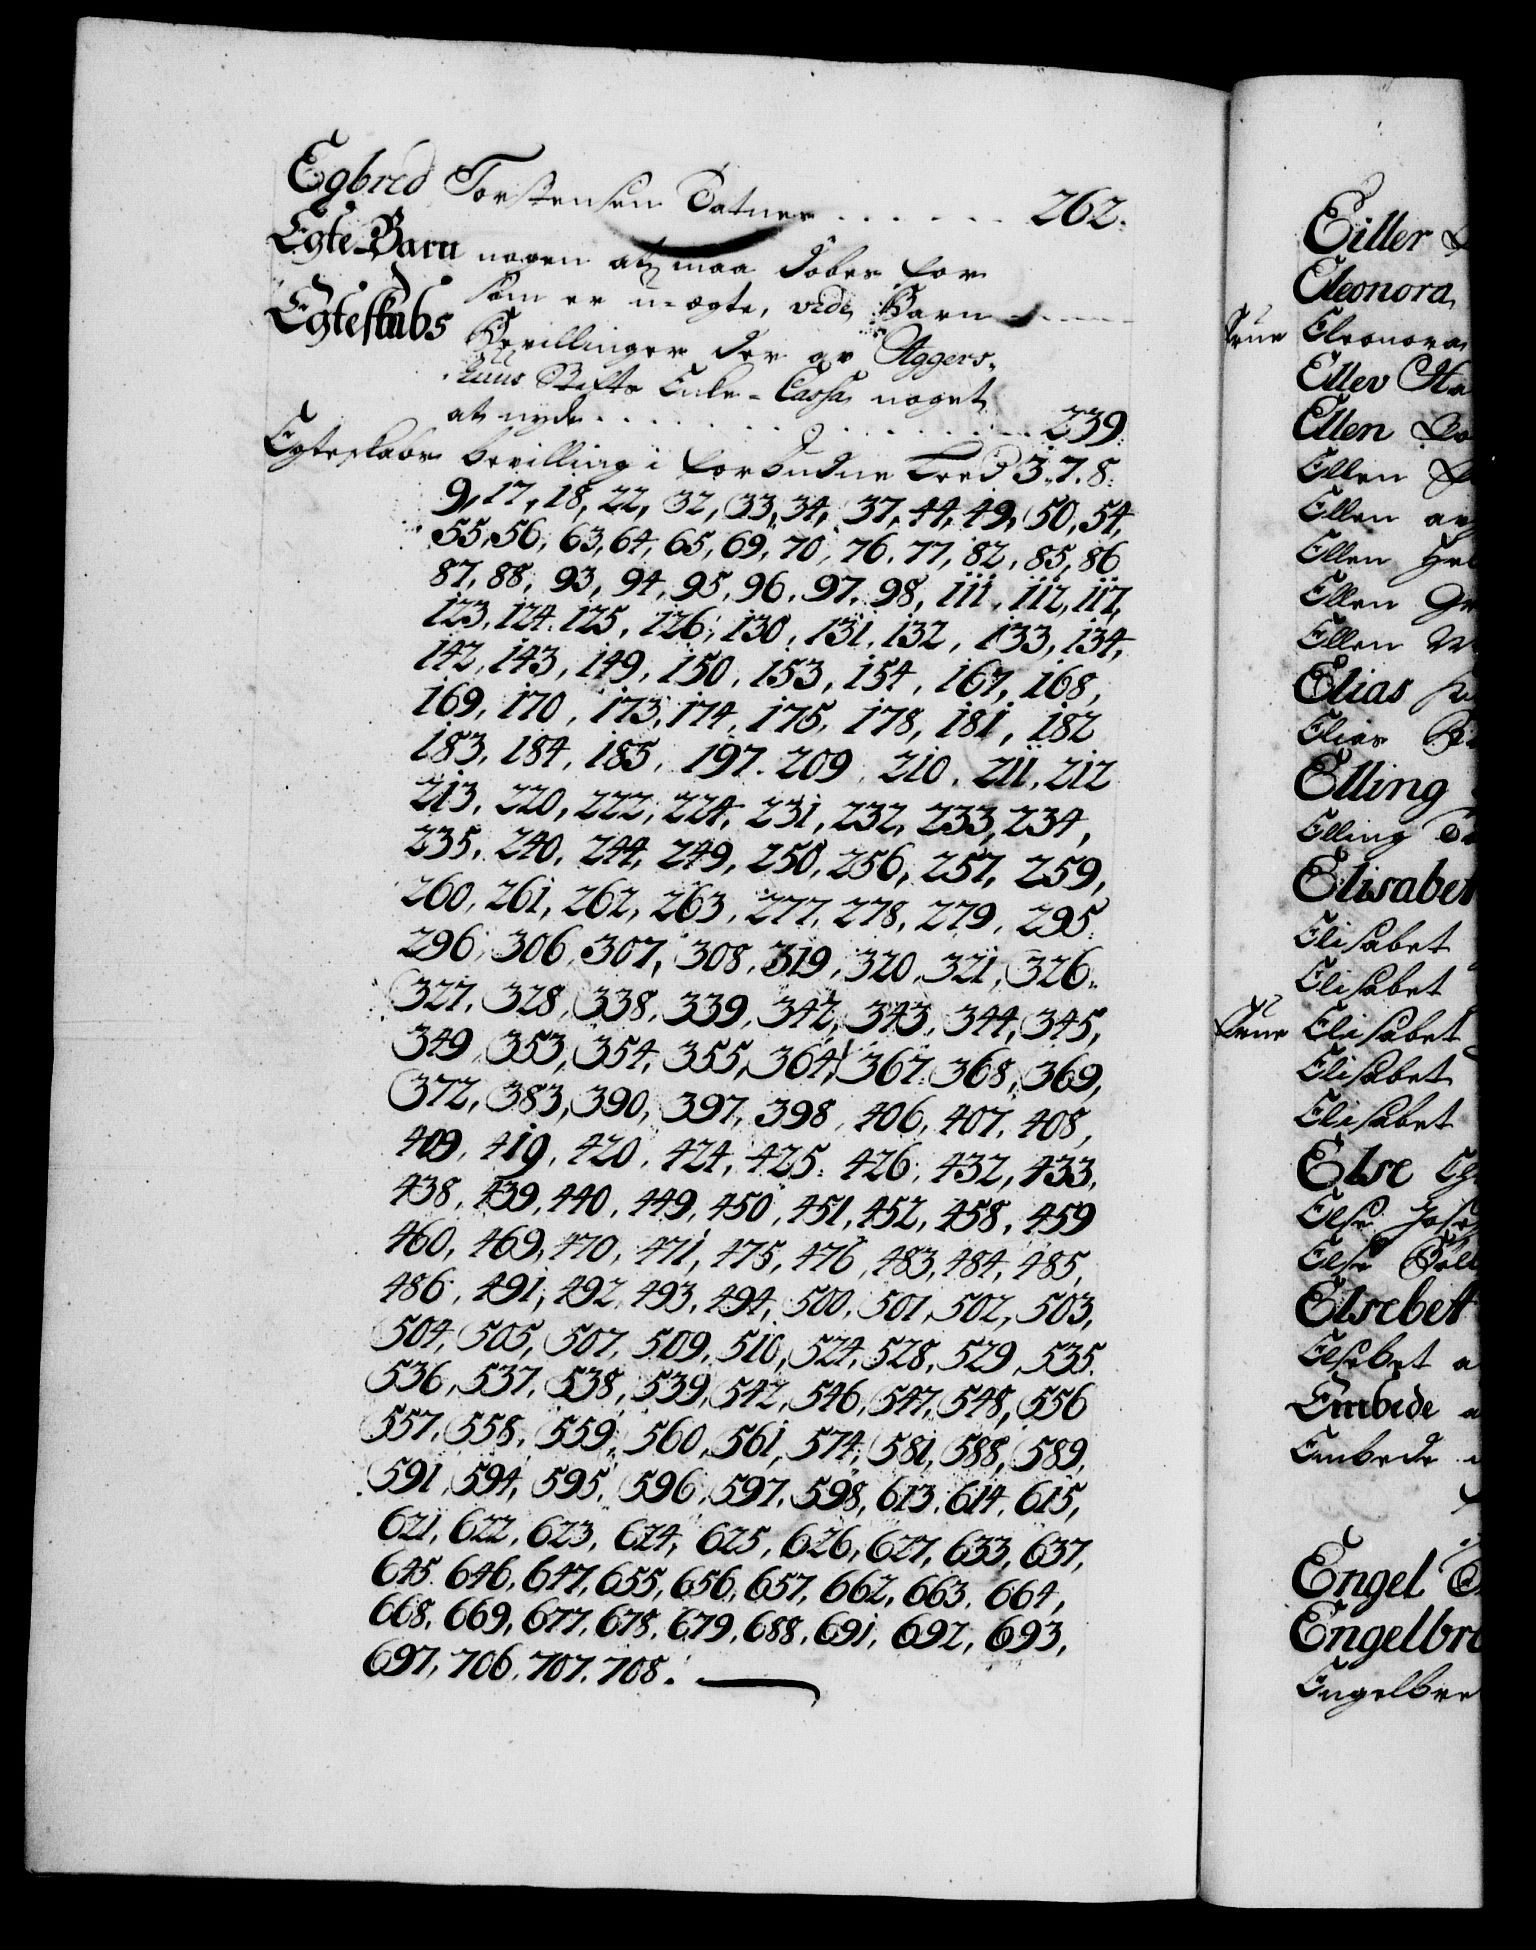 Egbred Torstensen Datner . . . . . . 262.
Egte Barn nogen at maa døbes for
som er u-ægte, vide Barn
Egteskabs Bevillinger der av Aggers-
huus Stifts Enke-Cassa noget
at nyde . . . . . . . . . 239.
Egteskabs bevilling i forbudne Leed 3. 7. 8.
9, 17, 18, 22, 32, 33, 34, 37, 44, 49, 50, 54,
55, 56, 63, 64, 65, 69, 70, 76, 77, 82, 85, 86
87, 88, 93, 94, 95, 96, 97, 98, 111, 112, 117,
123, 124, 125, 126, 130, 131, 132, 133, 134,
142, 143, 149, 150, 153, 154, 167, 168,
169, 170, 173, 174, 175, 178, 181, 182
183, 184, 185, 197. 209, 210, 211, 212
213, 220, 222, 224, 231, 232, 233, 234,
235, 240, 244, 249, 250, 256, 257, 259,
260, 261, 262, 263, 277, 278, 279, 295.
296, 306, 307, 308, 319, 320, 321, 326.
327, 328, 338, 339, 342, 343, 344, 345,
349, 353, 354, 355, 364, 367, 368, 369,
372, 383, 390, 397, 398, 406, 407, 408,
409, 419, 420, 424, 425, 426, 432, 433,
438, 439, 440, 449, 450, 451, 452, 458, 459
460, 469, 470, 471, 475, 476, 483, 484, 485,
486, 491, 492, 493, 494, 500, 501, 502, 503,
504, 505, 507, 509, 510, 524, 528, 529, 535.
536, 537, 538, 539, 542, 546, 547, 548, 556
557, 558, 559, 560, 561, 574, 581, 588, 589,
591, 594, 595, 596, 597, 598, 613, 614, 615,
621, 622, 623, 624, 625, 626, 627, 633, 637,
645. 646, 647, 655, 656, 657, 662, 663, 664,
668, 669, 677, 678, 679, 688, 691, 692, 693,
697, 706, 707, 708.
Eiller
Eleonora
Eleonora
Ellev Ha
Ellen
Ellen
Ellen av
Ellen
Ellen Gr
Ellen
Elias
Elias
Elling
Elling
Elisabet
Elisabet
Elisabet
Elisabet
Elisabet
Elisabet
Else
Else
Else
Elsebett
Elsebet a
Embede a
Embede
Engel
Engelbre
Engelbre